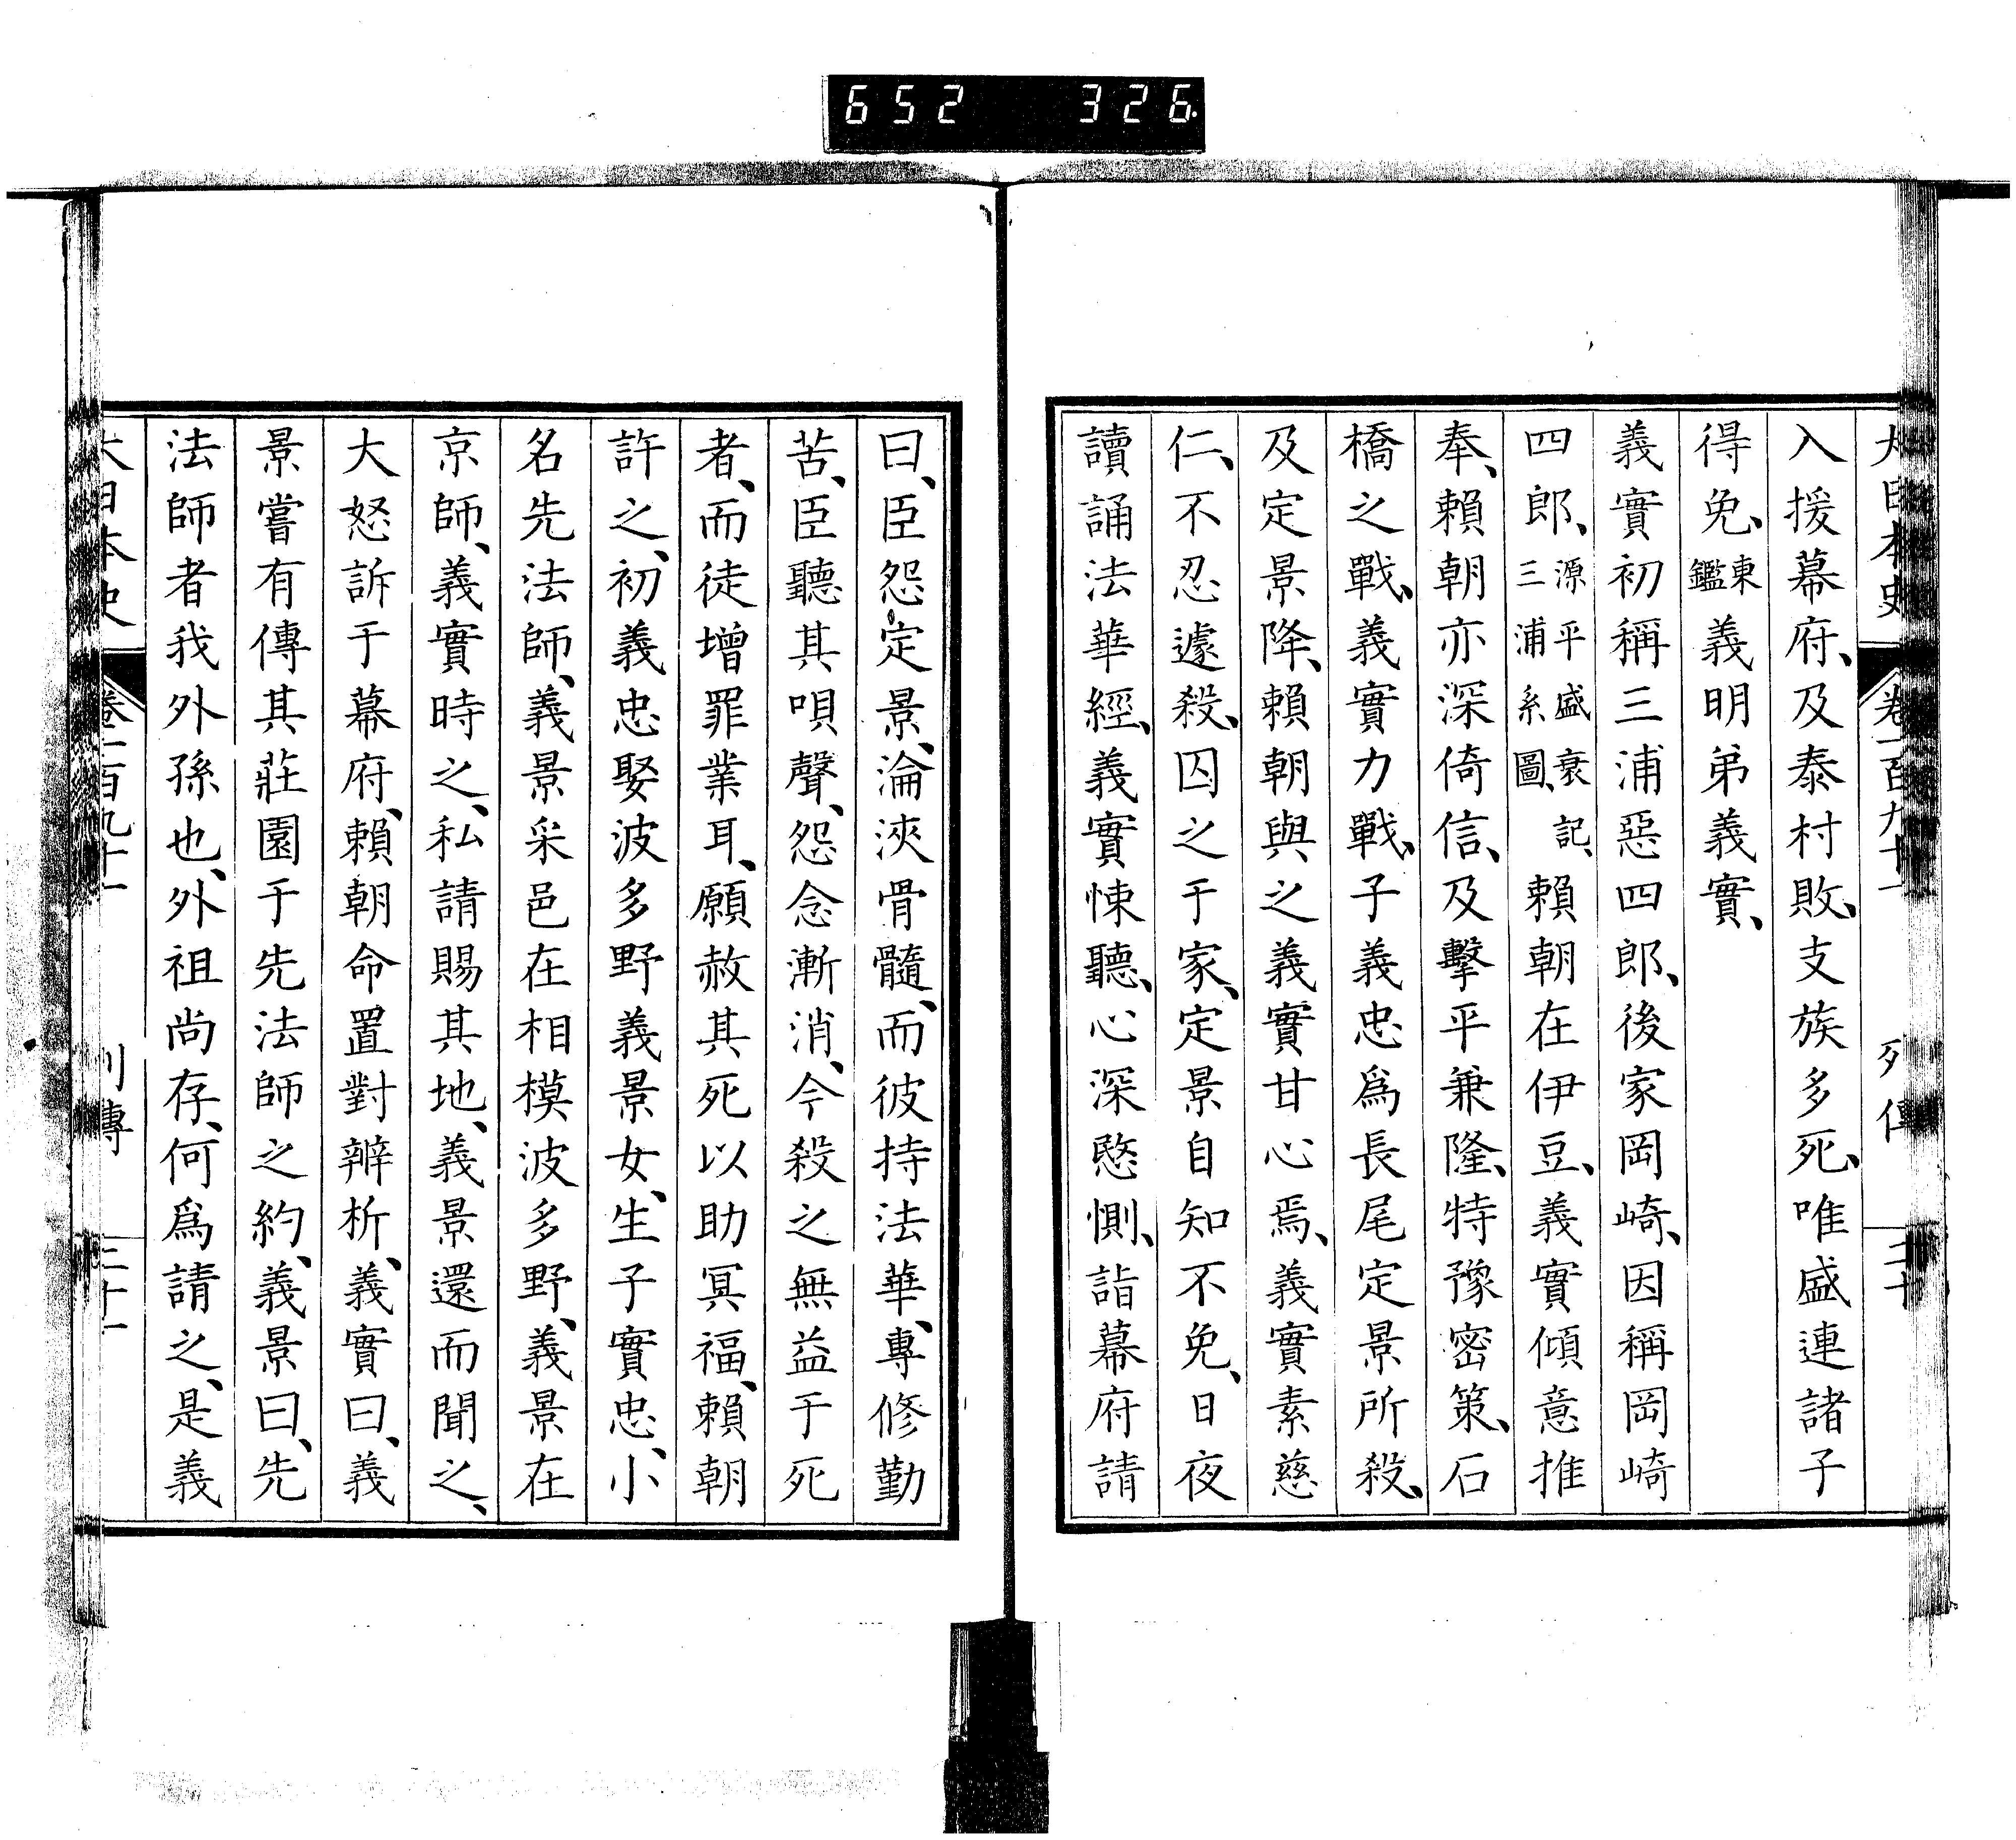 652 326
大日本史 卷一百九十一 列傳 二十
入援幕府、及泰村敗、支族多死、唯盛連諸子
得免、東鑑義明弟義實、
義實初稱三浦惡四郎、後家岡崎、因稱岡崎
四郎、源平盛衰記、三浦系圖、賴朝在伊豆、義實傾意推
奉、賴朝亦深倚信、及擊平兼隆、特豫密策、石
橋之戰、義實力戰、子義忠爲長尾定景所殺、
及定景降、賴朝與之義實甘心焉、義實素慈
仁、不忍遽殺、囚之于家、定景自知不免、日夜
讀誦法華經、義實悚聽、心深愍惻、詣幕府請
曰、臣怨定景、淪浹骨髓、而彼持法華、專修勤
苦、臣聽其唄聲、怨念漸消、今殺之無益于死
者、而徒增罪業耳、願赦其死以助冥福、賴朝
許之、初義忠娶波多野義景女、生子實忠、小
名先法師、義景采邑在相模波多野、義景在
京師、義實時之、私請賜其地、義景還而聞之、
大怒訴于幕府、賴朝命置對辨析、義實曰、義
景嘗有傳其莊園于先法師之約、義景曰、先
法師者我外孫也、外祖尚存、何爲請之、是義
大日本史 卷一百九十一 列傳 二十一